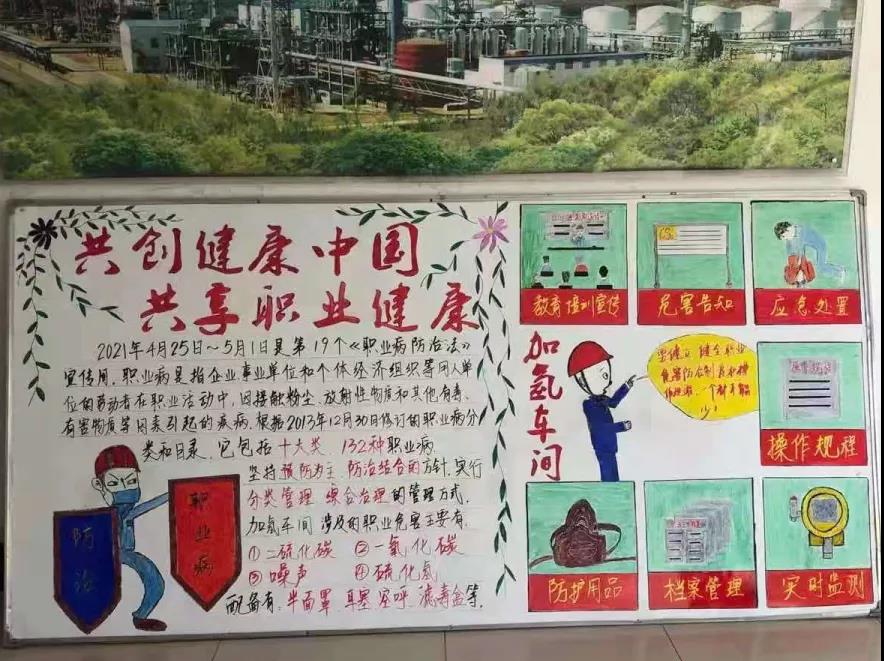 共创健康中国
共享职业健康
2021年4月25日~5月1日是第19个《职业病防治法》
宣传周,职业病是指企业、事业单位和个体经济组织等用人单
位的劳动者在职业活动中,因接触粉尘、放射性物质和其他有毒、
有害物质等因素引起的疾病.根据2013年12月30日修订的职业病分
类和目录,它包括十大类、132种职业病.
坚持预防为主、防治结合的方针,实行
分类管理、综合治理的管理方式.
加氢车间涉及的职业危害主要有:
①二硫化碳 ②一氧化碳
③噪声 ④硫化氢
配备有:半面罩、耳塞、空呼、滤毒盒等.
防治
职业病
教育培训宣传
危害告知
应急处置
加氢车间
要建立、健全职业
危害防治制度和操
一个都不能
少!
操作规程
防护用品
档案管理
实时监测